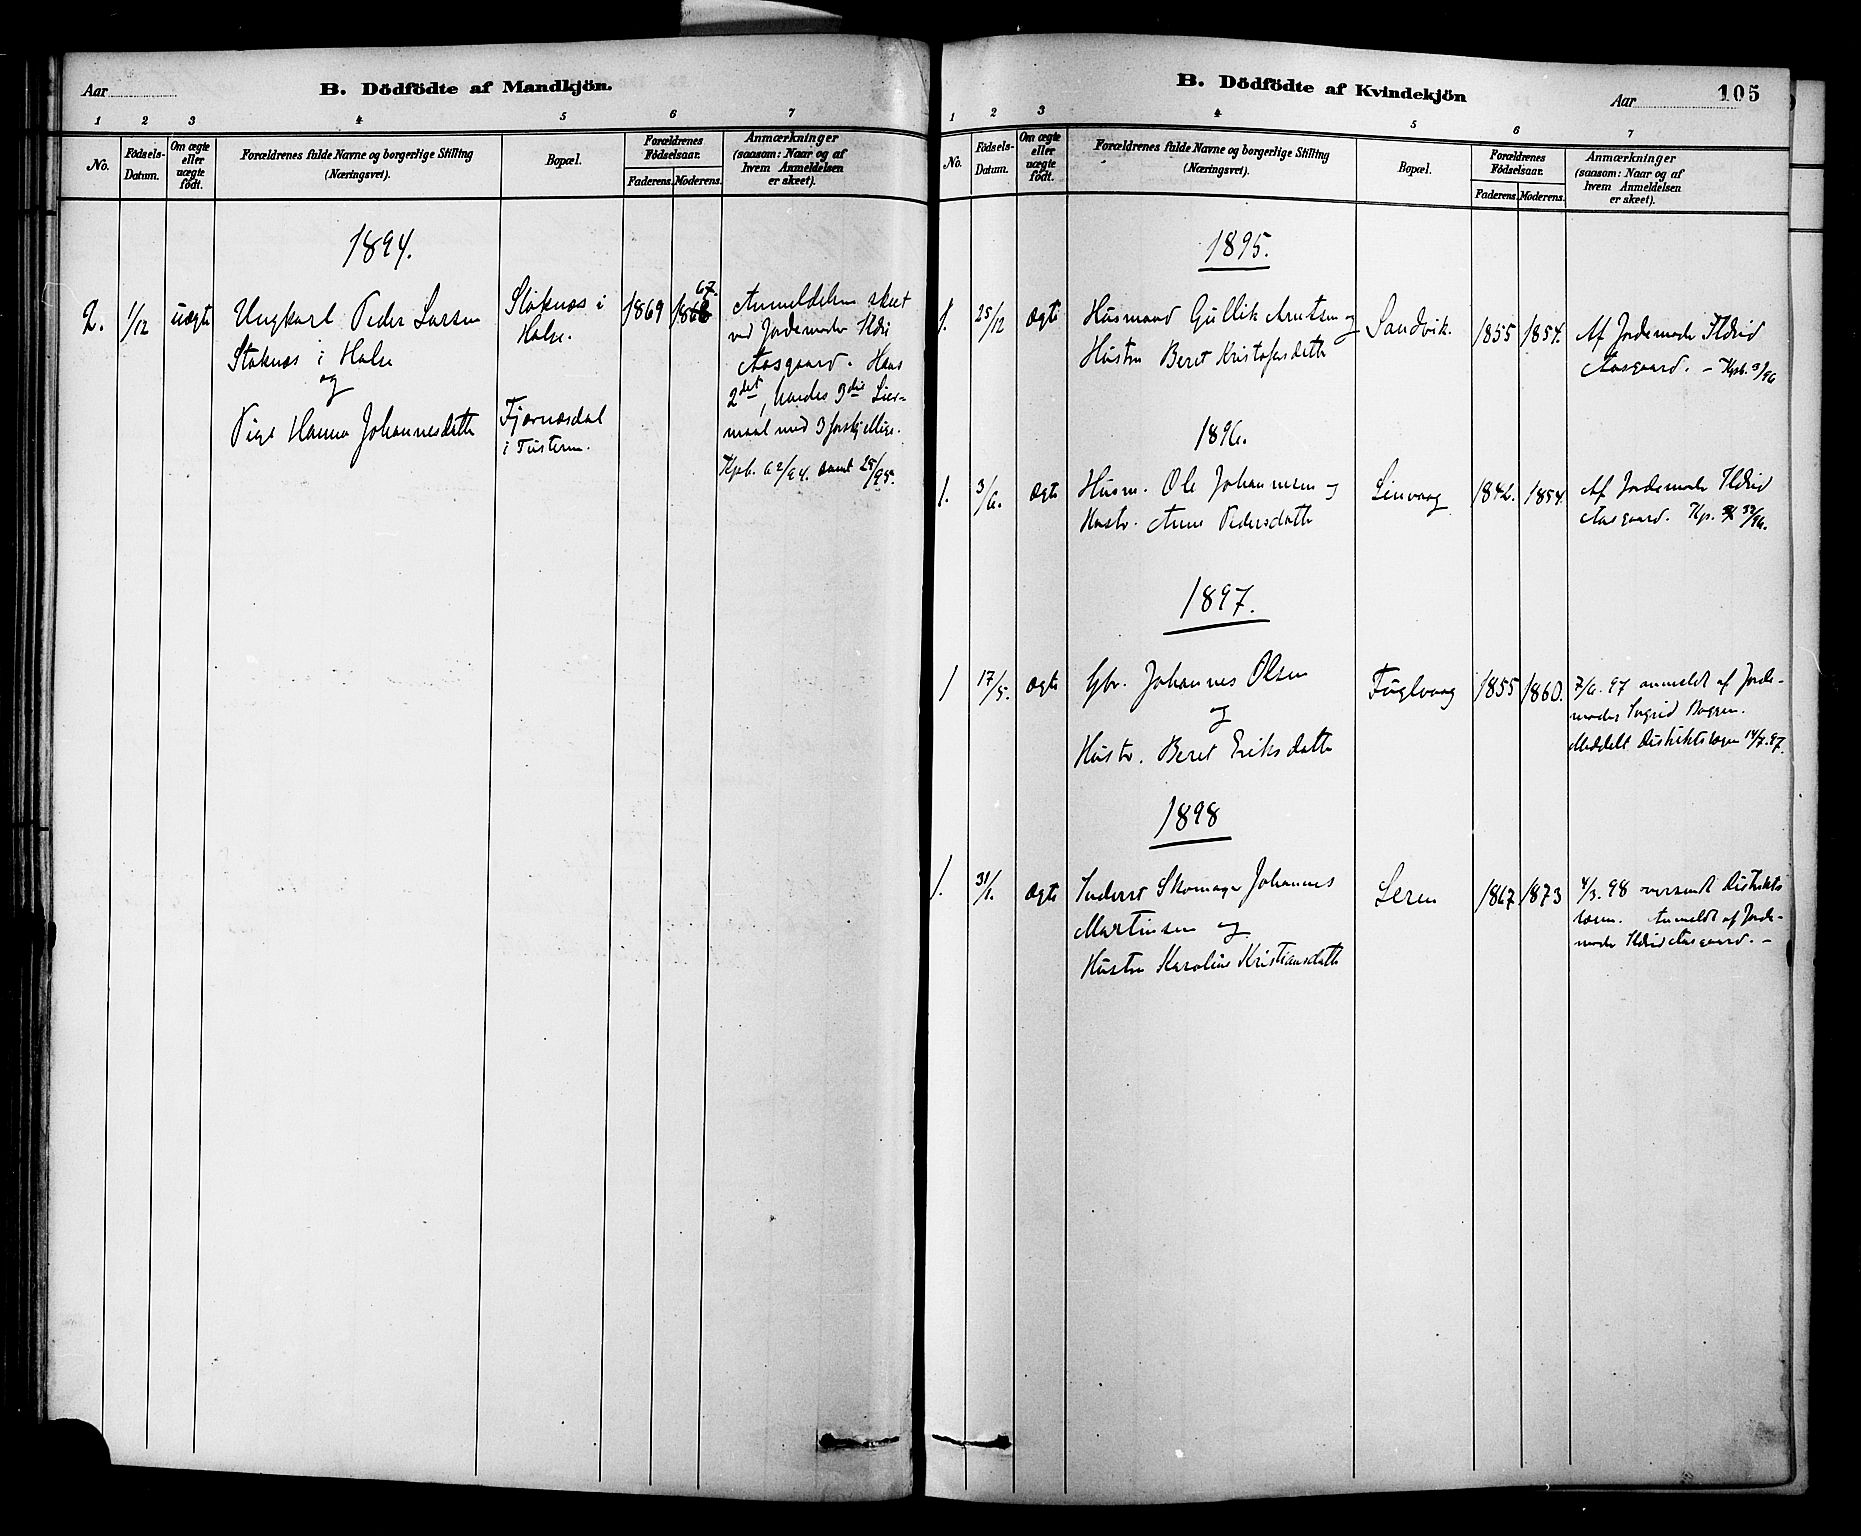 Aar
B. Dödfödte af Mandkjön.
1 2 3 4 5 6 7
No.
Födsels-
Datum.
Om ægte
eller
uægte
födt.
Forældrenes fulde Navne og borgerlige Stilling
(Næringsvei).
Bopæl.
Forældrenes
Födselsaar.
Faderens. Moderens.
Anmærkninger
(saasom: Naar og af
hvem Anmeldelsen
er skeet).
1894.
2. 1/12 uægte
Ungkarl Peder Larsen
Stoknæs i Halse
og
Pige Hanna Johannesdatte
Stoknæs i
Halse.
Fjærnæsdal
i Tustern.
1869 1868 67.
Anmeldelsen skeet
ved Jordemoder Ildri
Aasgaard. Hans
2det, hendes 3die Leier-
maal med 3 forskjellige.
Kpb. 62/94. samt 25/95.
B. Dödfödte af Kvindekjön
Aar 105
1 2 3 4 5 6 7
No.
Födsels-
Datum.
Om ægte
eller
uægte
födt.
Forældrenes fulde Navne og borgerlige Stilling
(Næringsvei).
Bopæl.
Forældrenes
Födselsaar.
Faderens. Moderens.
Anmærkninger
(saasom: Naar og af
hvem Anmeldelsen
er skeet).
1895.
1. 25/12 ægte
Husmand Gullik Arntsen og
Hustru Beret Kristofersdatte
Sandvik. 1855 1854.
Af Jordemoder Ildrid
Aasgaard. – Kpb. 3/96
1896.
1. 3/6. ægte
Husm. Ole Johannesen og
Hustr. Anne Pedersdatte
Leervaag 1842. 1854.
Af Jordemoder Ildrid
Aasgaard. Kp. 32/96.
1897.
1 17/5. ægte
Gbr. Johannes Olsen
og
Hustr. Beret Eriksdatte
Fuglvaag 1855 1860.
7/6. 97 anmeldt af Jorde-
moder Ingrid
Meddelt Distriktslægen 14/7.97.
1898
1. 31/1. ægte
Inderst Skomager Johannes
Martinsen og
Hustru Karoline Kristiansdatte
Leren 1867 1873
4/3. 98 oversendt Distrikts
lægen. Anmeldt af Jorde-
moder Ildrid Aasgaard. –